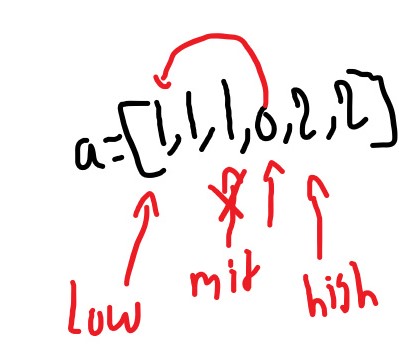 a=[1,1,1,0,2,2]
low
mid
high